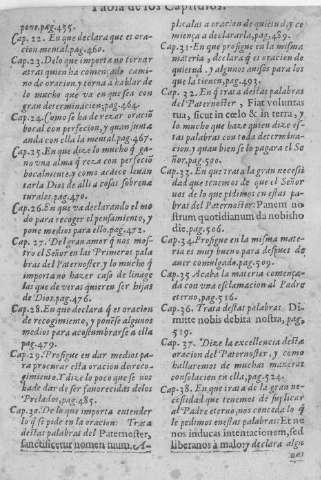 Tabla de los Capitulos.
pone.pag.455.
Cap. 22. En que declara que es ora-
cion mental.pag.460.
Cap.23. De lo que importa no tornar
atras quien ha comẽçado cami-
no de oracion, y torna à hablar de
lo mucho que va en que sea con
gran determinacion;pag.464.
Cap.24. Como se ha de rezar oraciõ
bocal con perfecion, y quan junta
anda con ella la mental.pag.467.
Cap.25. En que dize lo mucho q̃ ga-
na vna alma q̃ reza con perfeciõ
bocalmente, y como acaece leuan
tarla Dios de alli a cosas sobrena
turales.pag.470.
Cap.26. En que va declarando el mo
do para recoger el pensamiento, y
pone medios para ello.pag.472.
Cap. 27. Del gran amor q̃ nos mos-
tro el Señor en las Primeras pala
bras del Paternoster, y lo mucho q̃
importa no hazer caso de linage
las que de veras quieren ser hijas
de Dios.pag.476.
Cap.28. En que declara q̃ es oracion
de recogimiento, y ponẽse algunos
medios para acostumbrarse a ella
pag.479.
Cap.29. Prosigue en dar medios pa-
ra procurar esta oracion de reco-
gimiento. Y dize lo poco que se nos
ha de dar de ser fauorecidas de los
Prelados,pag.485.
Cap.30. De lo que importa entender
lo q̃ se pide en la oracion: Trata
destas palabras del Paternoster,
sanctificetur nomen tuum. A-
plicalas a oracion de quietud, y co
miença a declararla, pag.489.
Cap.31. En que prosigue en la misma
materia, y declara q̃ es oracion de
quietud, y algunos auisos para los
que la tienen,pag.493.
Cap. 32. En q̃ trata destas palabras
del Paternoster, Fiat voluntas
tua, sicut in cœlo & in terra, y
lo mucho que haze quien dize es-
tas palabras con toda determina-
cion, y quan bien se lo pagara el Se
ñor,pag.500.
Cap.33. En que trata la gran necessi
dad que tenemos de que el Señor
nos dè lo que pedimos en estas pa-
bras del Paternoster: Panem no
strum quotidianum da nobis ho
die.pag.506.
Cap.34. Prosigue en la misma mate-
ria es muy bueno para despues de
auer comulgado,pag.509.
Cap.35. Acaba la materia comença-
da con vna esclamacion al Padre
eterno,pag.516.
Cap.36. Trata destas palabras, Di-
mitte nobis debita nostra, pag,
519.
Cap.37. Dize la excelencia desta
oracion del Paternoster, y como
hallaremos de muchas maneras
consolacion en ella,pag.524.
Cap.38. En que trata de la gran ne-
cessidad que tenemos de suplicar
al Padre eterno, nos conceda lo q̃
le pedimos en estas palabras: Et ne
nos inducas intentacionem, sed
liberanos à malo; y declara algu
nas